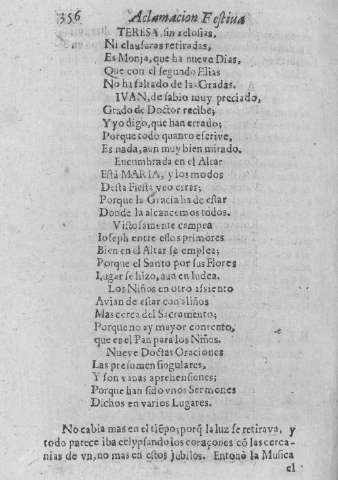 356 Aclamacion Festiua
TERESA, sin zelosias,
Ni clausuras retiradas,
Es Monja, que ha nueve Dias,
Que con el segundo Elias
No ha faltado de las Gradas.
IVAN, de sabio muy preciado,
Grado de Doctor recibe;
Y yo digo, que han errado;
Porque todo quanto escrive,
Es nada, aun muy bien mirado.
Encumbrada en el Altar
Està MARIA, y los modos
Desta Fiesta veo errar;
Porque la Gracia ha de estar
Donde la alcancemos todos.
Vistosamente campea
Ioseph entre estos primores
Bien en el Altar se emplea;
Porque el Santo por sus Flores
Lugar se hizo, aun en Iudea.
Los Niños en otro assiento
Avian de estar con aliños
Mas cerca del Sacramento;
Porque no ay mayor contento,
que es el Pan para los Niños.
Nueve Doctas Oraciones
Las presumen singulares,
Y son vanas aprehensiones;
Porque han sido vnos Sermones
Dichos en varios Lugares.
No cabia mas en el tiẽpo; porq̃ la luz se retirava, y
todo parece iba eclypsando los coraçones cõ las cerca-
nias de vn, no mas en estos jubilos. Entonò la Musica
el